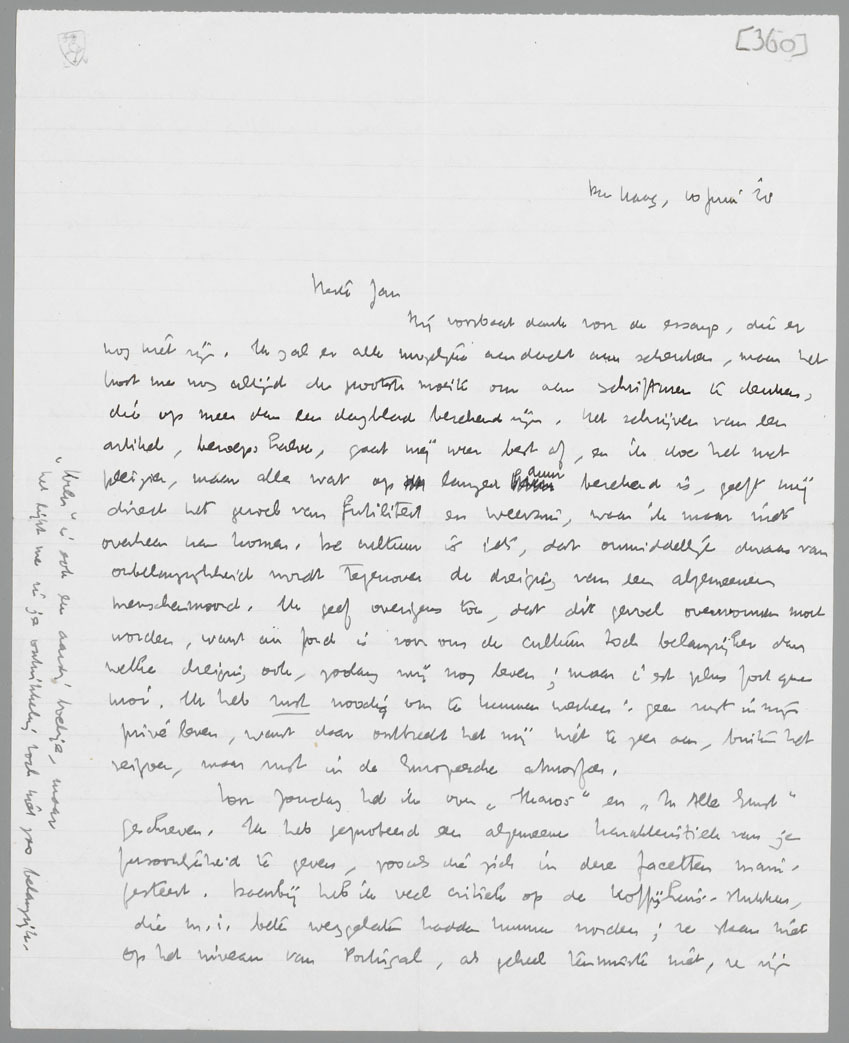 [360]
Den Haag, 10 Juni '38
Beste Jan
Bij voorbaat dank voor de essays, die er
nog niet zijn. Ik zal er alle mogelijke aandacht aan schenken, maar het
kost me nog altijd de grootste moeite om aan schrifturen te denken,
die op meer dan een dagblad berekend zijn. Het schrijven van een
artikel, beroepshalve, gaat mij weer best af, en ik doe het met
pleizier, maar alles wat op langen duur berekend is, geeft mij
direct het gevoel van futiliteit en weerzin, waar ik maar niet
overheen kan komen. De cultuur is iets, dat onmiddellijk dwaas van
onbelangrijkheid wordt tegenover de dreiging van een algemeenen
menschenmoord. Ik geef overigens toe, dat dit gevoel overwonnen moet
worden, want au fond is voor ons de cultuur toch belangrijker dan
welke dreiging ook, zoolang wij nog leven; maar c'est plus fort que
moi. Ik heb rust noodig om te kunnen werken: geen rust in mijn
privé leven, want daar ontbreekt het mij niet te zeer aan, buiten het
, maar rust in de Europeesche atmosfeer.
Voor Zondag heb ik over „ " en „In Alle Ernst"
geschreven. Ik heb geprobeerd een algemeene karakteristiek van je
persoonlijkheid te geven, zooals die zich in deze facetten mani-
festeert. Daarbij heb ik veel critiek op de koffijhuis-stukken,
die m.i. beter weggelaten hadden kunnen worden; ze staan niet
op het niveau van Portugal, als geheel tenminste niet, ze zijn
" is ook een aardig boekje, maar
het lijkt me in je ontwikkeling toch niet zoo belangrijk.